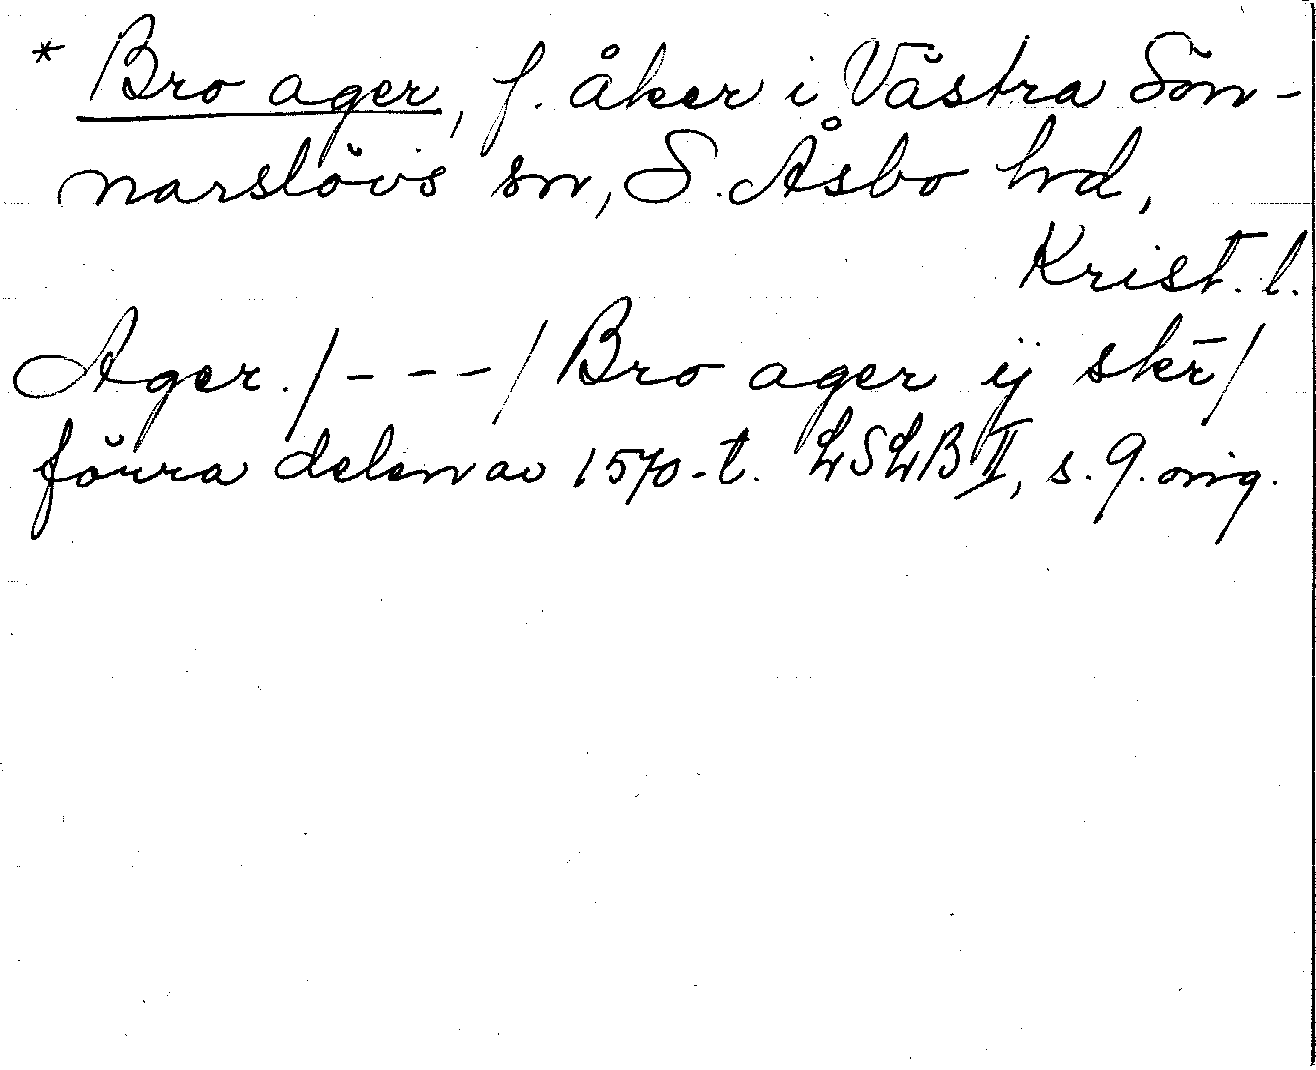 * Bro ager, f. åker i Västra Sön-
narslövs sn, S. Åsbo hd,
Krist. l.
Ager. /---/ Bro ager ij skr̄/
förra delen av 1570-t. LSLB II, s. 9. orig.